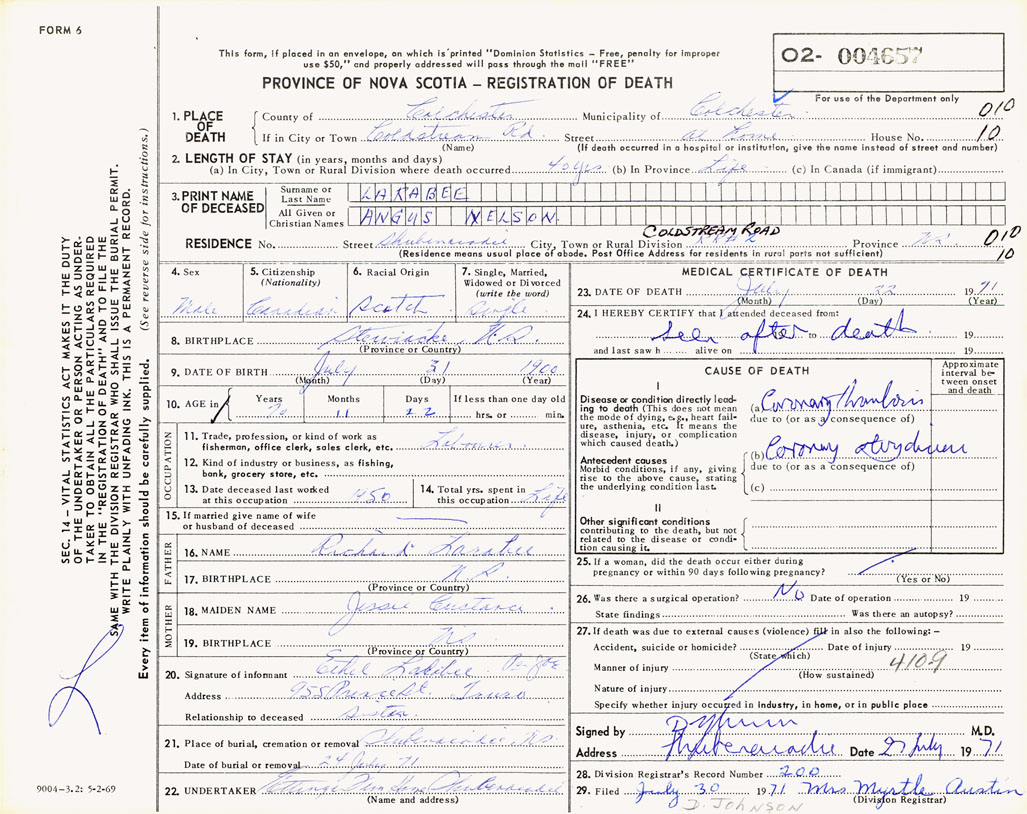 FORM 6
This form, if placed in an envelope, on which is printed "Dominion Statistics – Free, penalty for improper
use $50," and properly addressed will pass through the mail "FREE"
O2- 004657
PROVINCE OF NOVA SCOTIA – REGISTRATION OF DEATH
For use of the Department only
1. PLACE OF DEATH County of Colchester Municipality of Colchester 010
If in City or Town Coldstream Rd. Street at Home House No. 10
(Name) (If death occurred in a hospital or institution, give the name instead of street and number)
2. LENGTH OF STAY (in years, months and days)
(a) In City, Town or Rural Division where death occurred 40 yrs (b) In Province Life (c) In Canada (if immigrant)
3. PRINT NAME OF DECEASED Surname or Last Name LARABEE
All Given or Christian Names ANGUS NELSON
COLDSTREAM ROAD
RESIDENCE No. Street Shubenacadie City, Town or Rural Division RR# 2 Province NS 010
(Residence means usual place of abode. Post Office Address for residents in rural parts not sufficient) 10
4. Sex 5. Citizenship (Nationality) 6. Racial Origin 7. Single, Married, Widowed or Divorced (write the word)
Male Canadian Scotch Single
8. BIRTHPLACE Stewiacke, NS
(Province or Country)
9. DATE OF BIRTH July 31 1900
(Month) (Day) (Year)
10. AGE in Years Months Days If less than one day old
70 11 22 hrs. or min.
OCCUPATION
11. Trade, profession, or kind of work as
fisherman, office clerk, sales clerk, etc. Laborer
12. Kind of industry or business, as fishing,
bank, grocery store, etc.
13. Date deceased last worked
at this occupation 1950
14. Total yrs. spent in
this occupation Life
15. If married give name of wife
or husband of deceased
FATHER
16. NAME Richard Larabee
17. BIRTHPLACE NS
(Province or Country)
MOTHER
18. MAIDEN NAME Jessie Custance
19. BIRTHPLACE NS
(Province or Country)
20. Signature of informant Ethel Larabee
Address 955 Prince St Truro
Relationship to deceased sister
21. Place of burial, cremation or removal Shubenacadie NS
Date of burial or removal 24 July 71
22. UNDERTAKER Shubenacadie
(Name and address)
MEDICAL CERTIFICATE OF DEATH
23. DATE OF DEATH July 22 1971
(Month) (Day) (Year)
24. I HEREBY CERTIFY that I attended deceased from:
seen after to death 19
and last saw h alive on 19
CAUSE OF DEATH
Approximate interval between onset and death
I
Disease or condition directly leading to death (This does not mean
the mode of dying, e.g., heart failure, asthenia, etc. It means the
disease, injury, or complication
which caused death.)
(a) Coronary thrombosis
due to (or as a consequence of)
Antecedent causes
Morbid conditions, if any, giving
rise to the above cause, stating
the underlying condition last.
(b) Coronary
due to (or as a consequence of)
(c)
II
Other significant conditions
contributing to the death, but not
related to the disease or condition causing it.
25. If a woman, did the death occur either during
pregnancy or within 90 days following pregnancy?
(Yes or No)
26. Was there a surgical operation? No Date of operation 19
State findings Was there an autopsy?
27. If death was due to external causes (violence) fill in also the following: –
Accident, suicide or homicide? Date of injury 19
(State which)
Manner of injury 4109
(How sustained)
Nature of injury
Specify whether injury occurred in Industry, in home, or in public place
Signed by M.D.
Address Shubenacadie Date 27 July 1971
28. Division Registrar's Record Number 200
29. Filed July 30 1971 Mrs Myrtle Austin
(Division Registrar)
D. JOHNSON
SEC. 14 – VITAL STATISTICS ACT MAKES IT THE DUTY
OF THE UNDERTAKER OR PERSON ACTING AS UNDER-
TAKER TO OBTAIN ALL THE PARTICULARS REQUIRED
IN THE "REGISTRATION OF DEATH" AND TO FILE THE
SAME WITH THE DIVISION REGISTRAR WHO SHALL ISSUE THE BURIAL PERMIT.
WRITE PLAINLY WITH UNFADING INK. THIS IS A PERMANENT RECORD.
Every item of information should be carefully supplied. (See reverse side for instructions.)
9004-3.2: 5-2-69